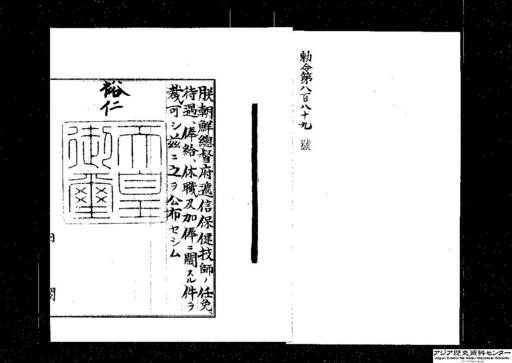 勅令第八百八十九號
朕朝鮮總督府遞信保健技師ノ任免、
待遇、俸給、休職及加俸ニ關スル件ヲ
裁可シ茲ニ之ヲ公布セシム
裕仁
天皇
御璽
内閣
アジア歴史資料センター
Japan Center for Asian Historical Records